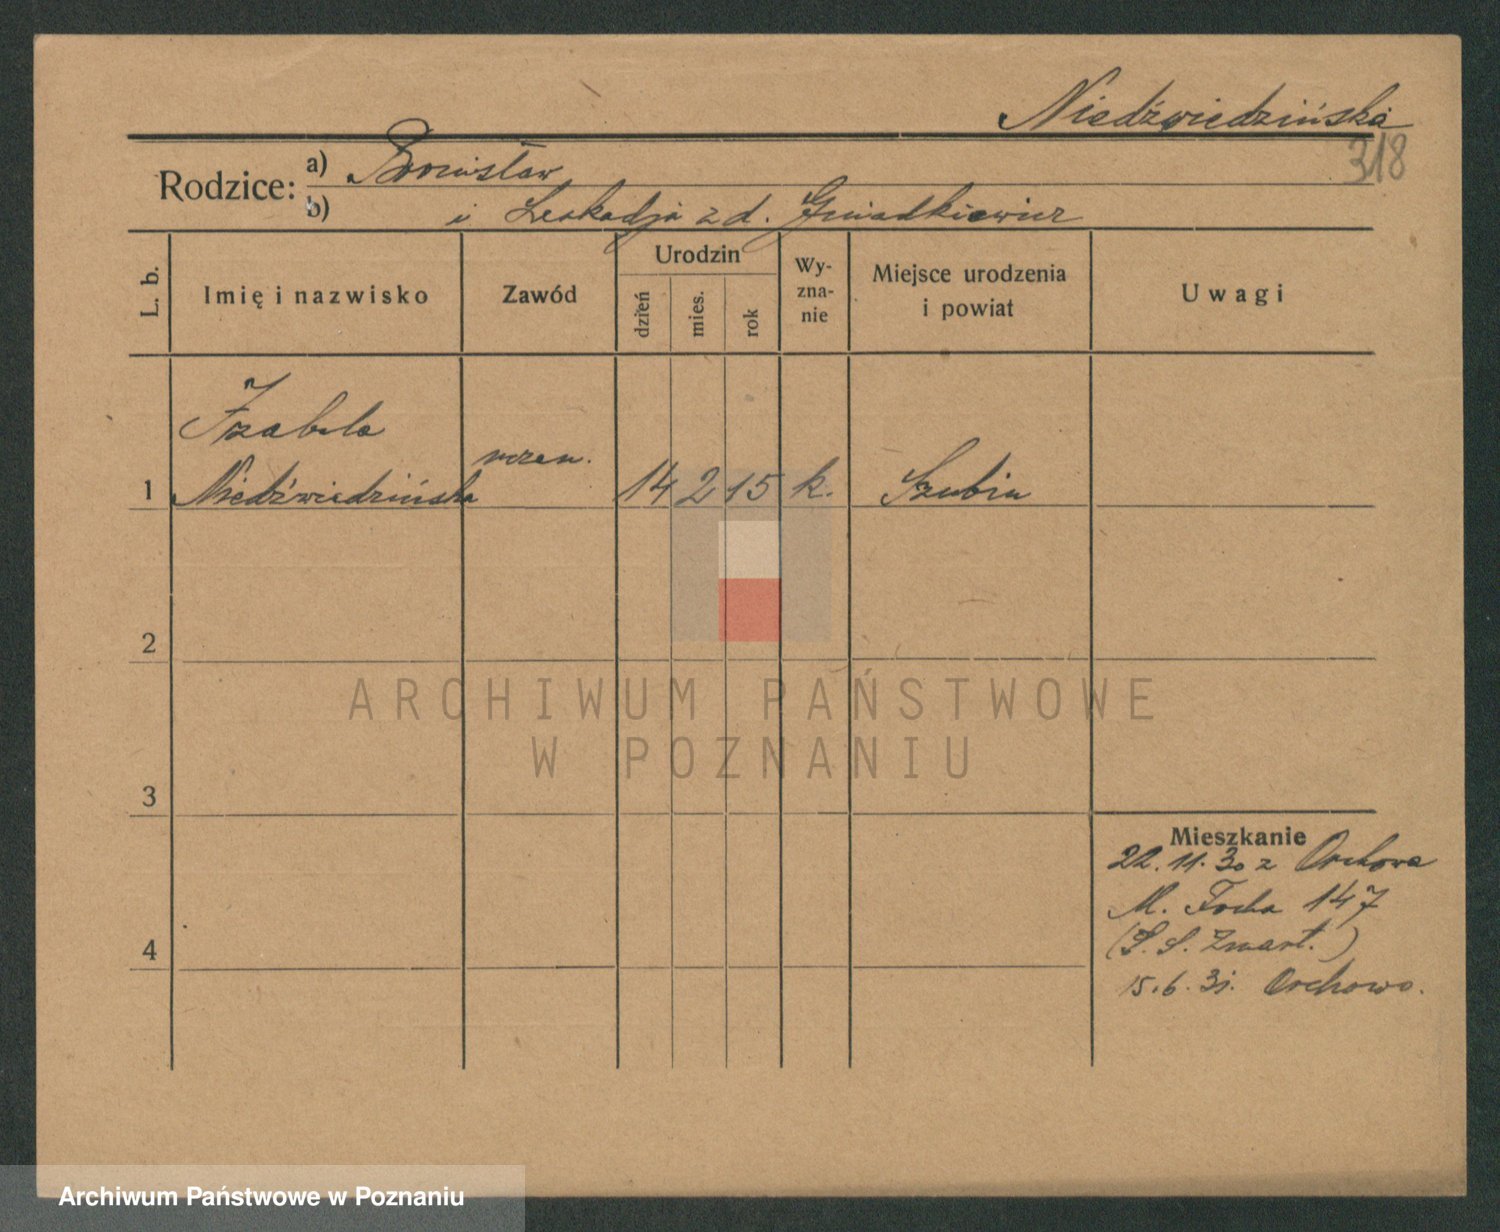 Niedźwiedzińska
318
Rodzice: a) Bronisław
b) i Leokadja z d. Gniadkiewicz
L. b. Imię i nazwisko Zawód Urodzin dzień mies. rok Wy-zna-nie Miejsce urodzenia i powiat Uwagi
Izabela
uczen.
1 Niedźwiedzińska 14 2 15 k. Szubin
2
ARCHIWUM PAŃSTWOWE
W POZNANIU
3
Mieszkanie
22.11.30 z Orchowa
M. Focha 147
(S. S. Zmart.)
4
15.6.31. Orchowo.
Archiwum Państwowe w Poznaniu